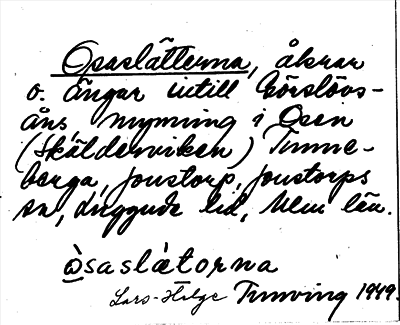 Osaslätterna, åkrar
o. ängar intill Görslövs-
åns mynning i Osen
(Skälderviken) Tunne-
berga, Jonstorp, Jonstorps
sn, Luggude hd, Mlm län.
òsaslàtorna
Lars-Helge Tunving 1949.